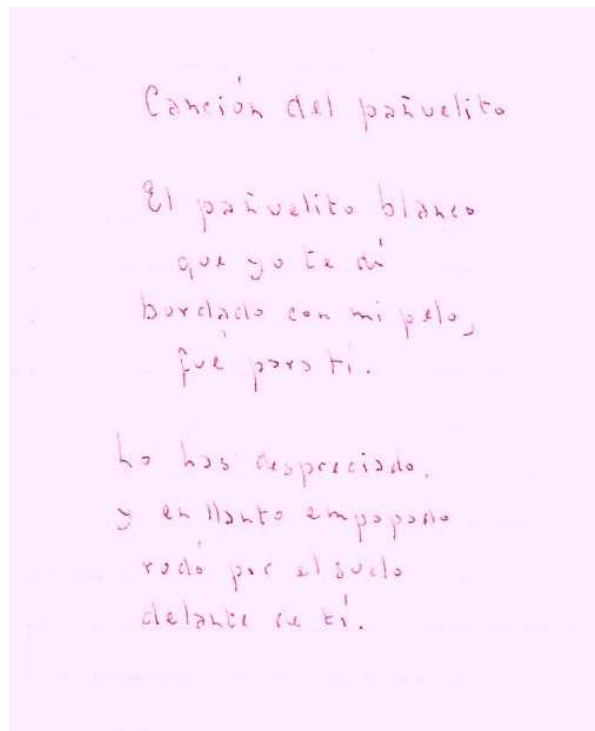 Canción del pañuelito
El pañuelito blanco
que yo te dí
bordado con mi pelo,
fué para tí.
Lo has despreciado.
y en llanto empapado
rodó por el suelo
delante de tí.